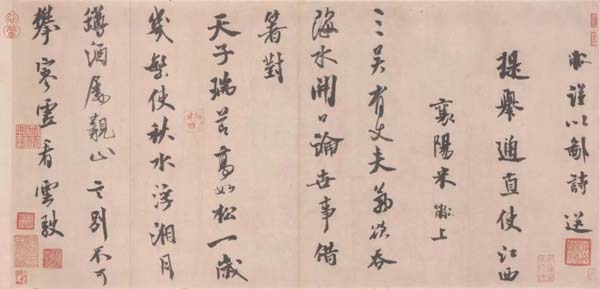 黻謹以鄙詩送
提舉通直使江西
襄陽米黻上
三吴有丈夫氣欲吞
海水開口論世事借
箸對
天子瑞節高如松一歲
幾繁使秋水浮湘月
罇酒屢觀山言别不可
攀寥看雲駛